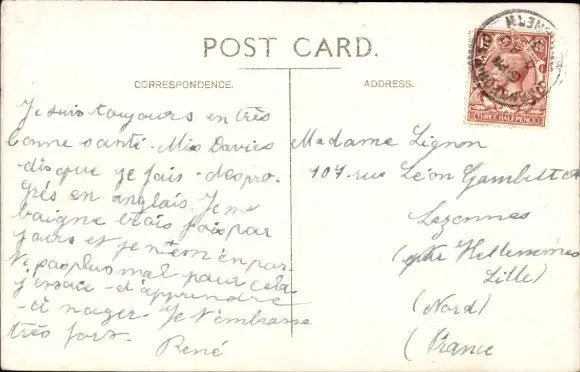 POST CARD.
CORRESPONDENCE.
ADDRESS.
THREE HALF PENCE
Je suis toujours en très
bonne santé. Miss Davies
dis que je fais des pro-
grès en anglais. Je me
baigne trois fois par
jours et je m'en
pas plus mal pour cela
j'essaie d'apprendre
à nager. Je t'embrasse
très fors.
René
Madame Lignon
107 rue Léon Gambetta
Lezennes
Hellemmes
Lille)
(Nord)
(France